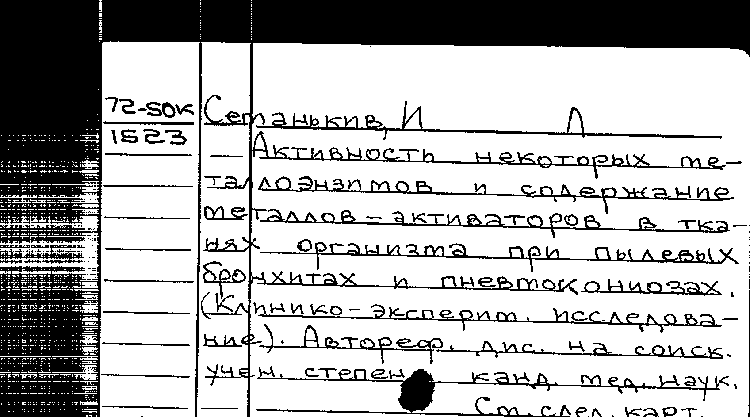 72-SOK
1523
Сетанькив, И Л
Активность некоторых ме-
таллоэнзимов и содержание
металлов-активаторов в тка-
нях организма при пылевых
бронхитах и пневмокониозах.
(Клинико-эксперим. исследова-
ние). Автореф. дис. на соиск.
учен. степен канд. мед. наук.
См. след. карт.